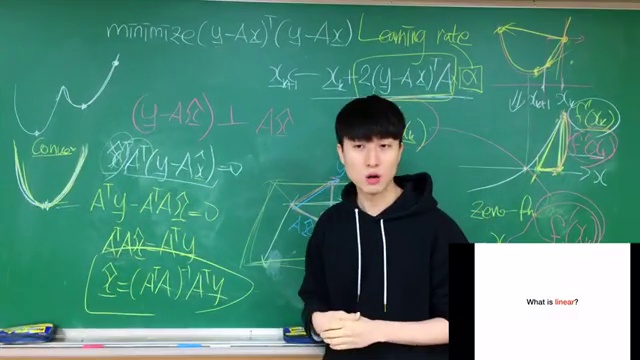 minimize (y-Ax)ᵀ(y-Ax) Learning rate
x_{k+1} ← x_k + 2(y-Ax)ᵀA α
(y-Ax̂) ⊥ Ax̂
Convex
x̂ᵀAᵀ(y-Ax̂)=0
Aᵀy-AᵀAx̂=0
AᵀAx̂=Aᵀy
x̂=(AᵀA)⁻¹Aᵀy
x_{k+1} x_k
x
What is linear?